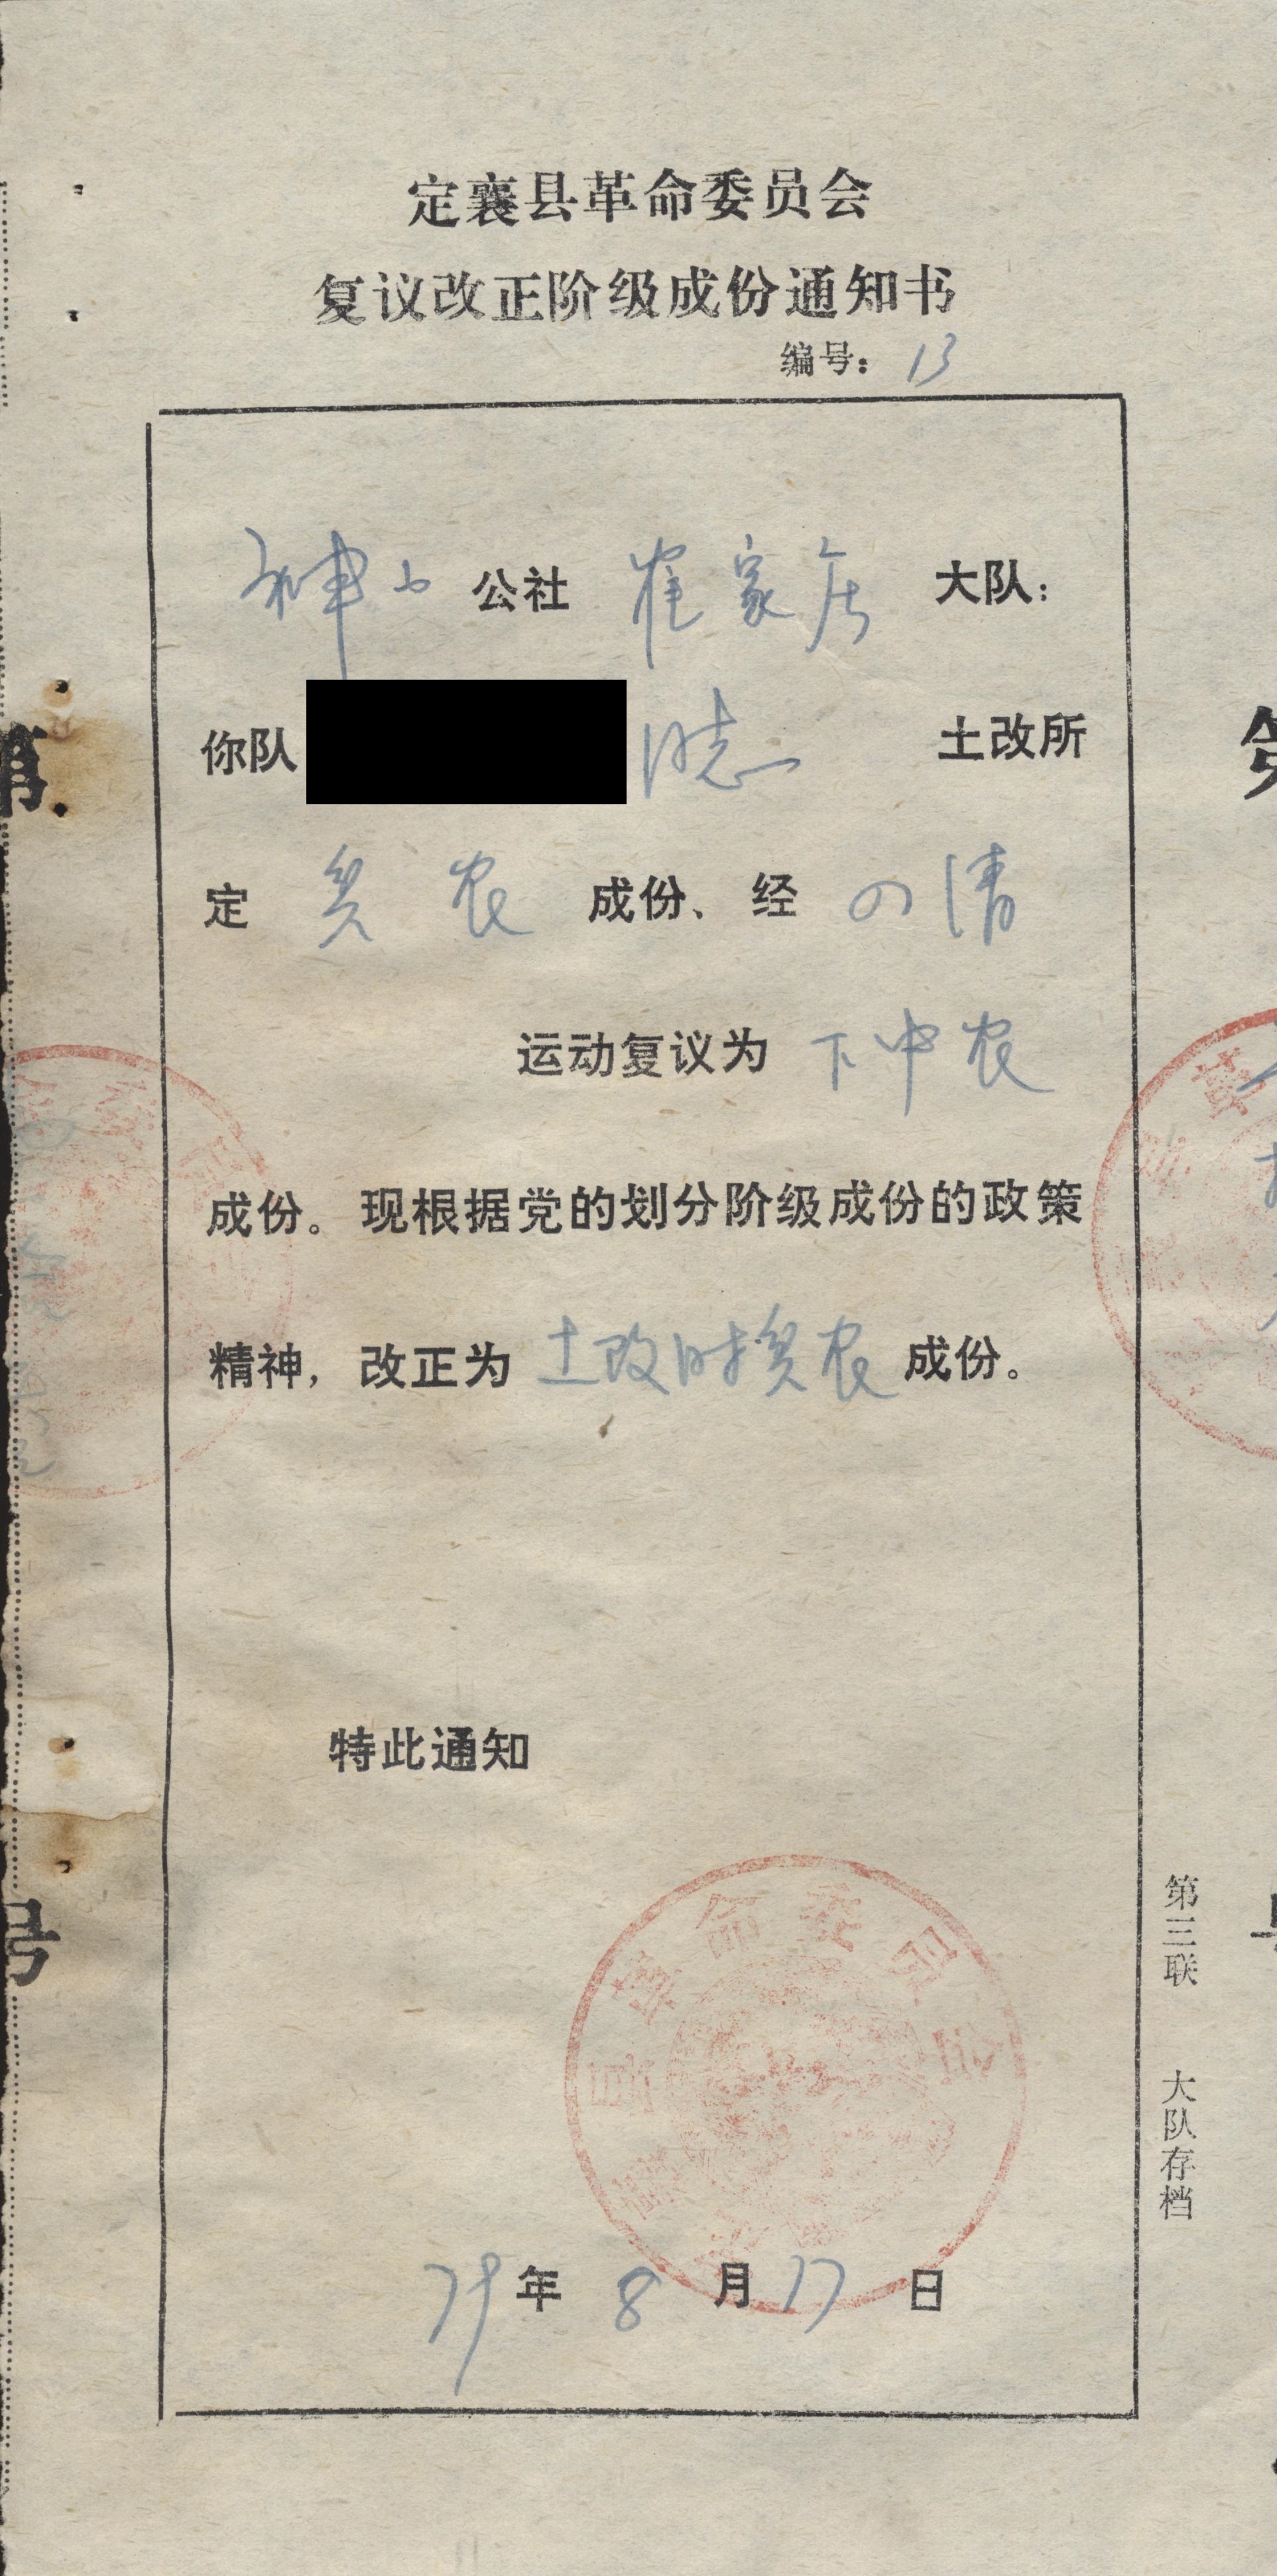 定襄县革命委员会
复议改正阶级成份通知书
编号：13
神山公社 崔家庄 大队：
你队 同志 土改所
定 贫农 成份、经 四清
运动复议为 下中农
成份。现根据党的划分阶级成份的政策
精神，改正为 土改时贫农 成份。
特此通知
县革命委员会
79年8月17日
第三联 大队存档
第
号